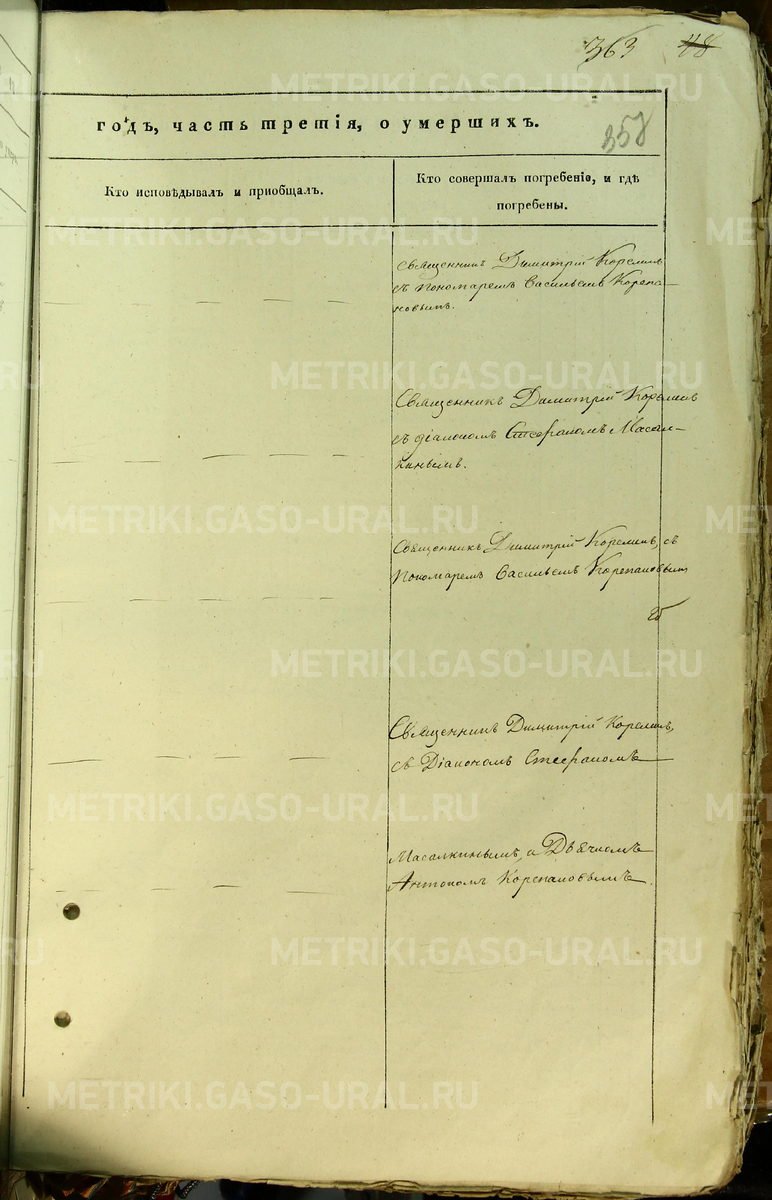 363 48
годъ, часть третія, о умершихъ.
358
Кто исповѣдывалъ и пріобщалъ.
Кто совершалъ погребеніе, и гдѣ
погребены.
Священникъ Димитрій
съ пономаремъ Васильемъ Корепа-
новымъ.
Священникъ Димитрій
съ діакономъ Стефаномъ Масал-
кинымъ.
Священникъ Димитрій съ
Пономаремъ Васильемъ Корепановым
Священникъ Димитрій
съ Діакономъ Стефаномъ
Масалкинымъ, и Дьячкомъ
Антономъ Корепановымъ.
METRIKI.GASO-URAL.RU